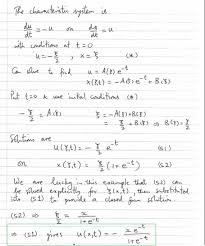 The characteristic system is
du/dt = -u on dx/dt = u
with conditions at t=0
u = -ξ/2, x = ξ (*)
Can solve to find u = A(ξ)e^-t
x(ξ,t) = -A(ξ)e^-t + B(ξ)
Put t=0 & use initial conditions (*)
-ξ/2 = A(ξ) ξ = -A(ξ) + B(ξ)
= ξ/2 + B(ξ) ⇒ B(ξ) = ξ/2
Solutions are
u(ξ,t) = -ξ/2 e^-t (S1)
on x(ξ,t) = ξ/2 (1+e^-t) (S2)
We are lucky in this example that (S2) can
be solved explicitly for ξ(x,t), then substituted
into (S1) to provide a closed form solution
(S2) ⇒ ξ/2 = x/(1+e^-t)
⇒ (S1) gives u(x,t) = -x e^-t/(1+e^-t)